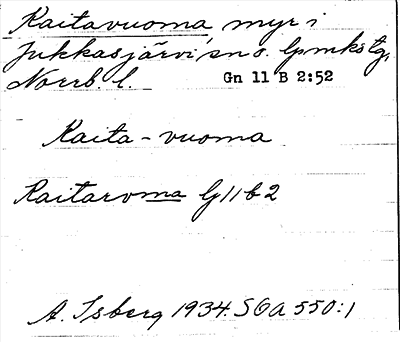 Kaitavuoma, myr i
Jukkasjärvi sn o. lpmkstg,
Norrb. l. Gn 11 B 2:52
Kaita-vuoma
Kaitarvma G11b2
A. Isberg 1934. SOA 550:1